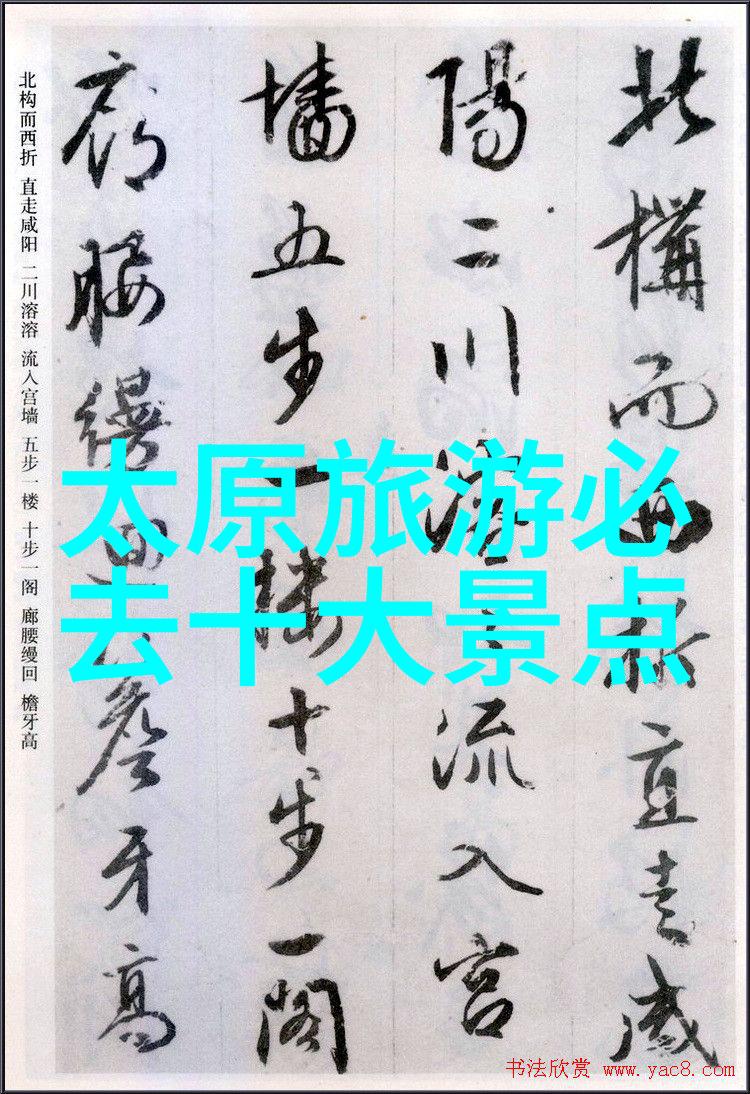 北構而西折直走咸
陽二川溶〻流入宫
墻五步一楼十步一閣
廊腰缦迴簷牙高
北构而西折 直走咸阳 二川溶溶 流入宫墙 五步一楼 十步一阁 廊腰缦回 檐牙高
太原旅游必
去十大景点
书法欣赏 www.yac8.com